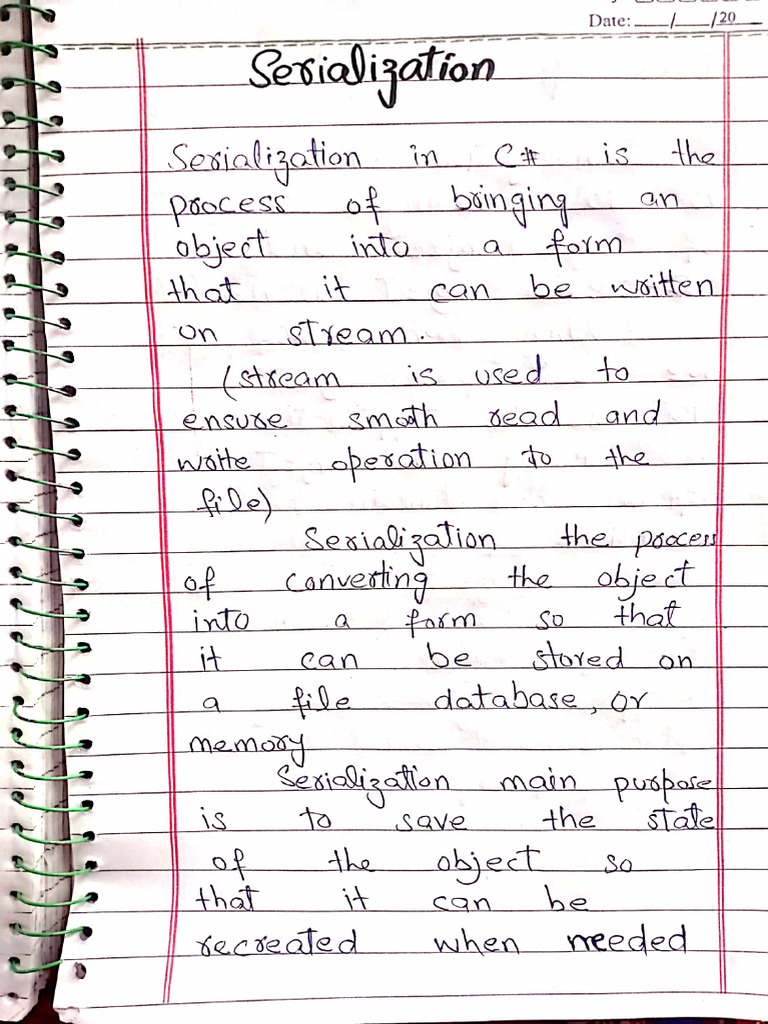 Date: ___/___/20___
Serialization
Serialization in C# is the
process of bringing an
object into a form
that it can be written
on stream.
(stream is used to
ensure smooth read and
write operation to the
file)
Serialization the process
of converting the object
into a form so that
it can be stored on
a file database, or
memory
Serialization main purpose
is to save the state
of the object so
that it can be
recreated when needed